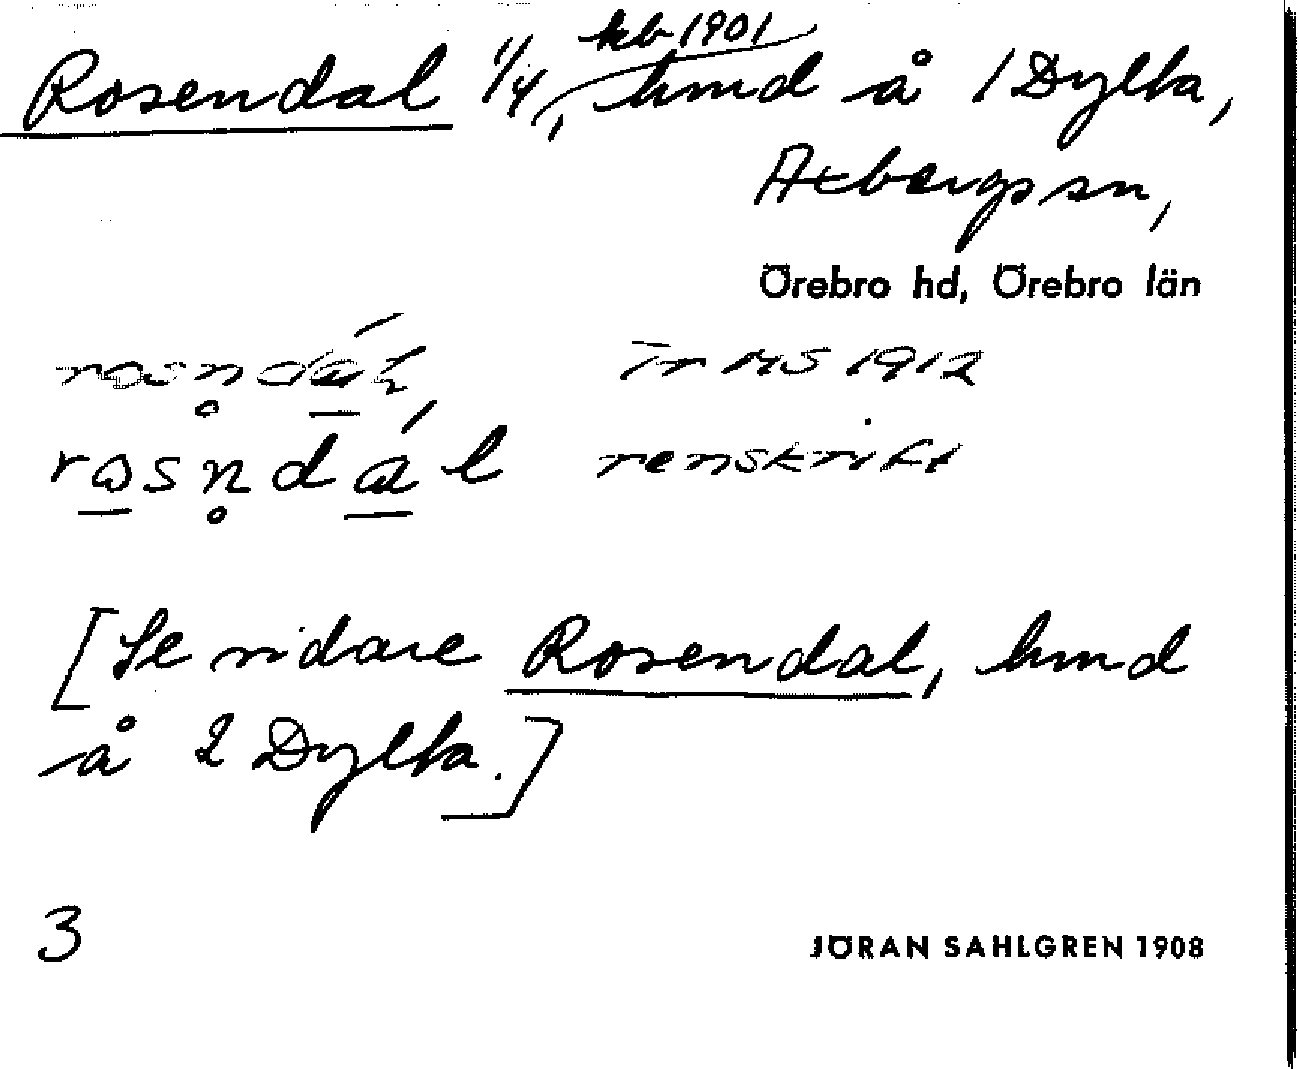 kb 1901
Rosendal 1/4, hmd å 1 Dylta,
Axbergs sn,
Örebro hd, Örebro län
rosn̥dál Ör MS 1912
ro̲sn̥dá̲l renskrift
[Se vidare Rosendal, hmd
å 2 Dylta.]
3
JÖRAN SAHLGREN 1908